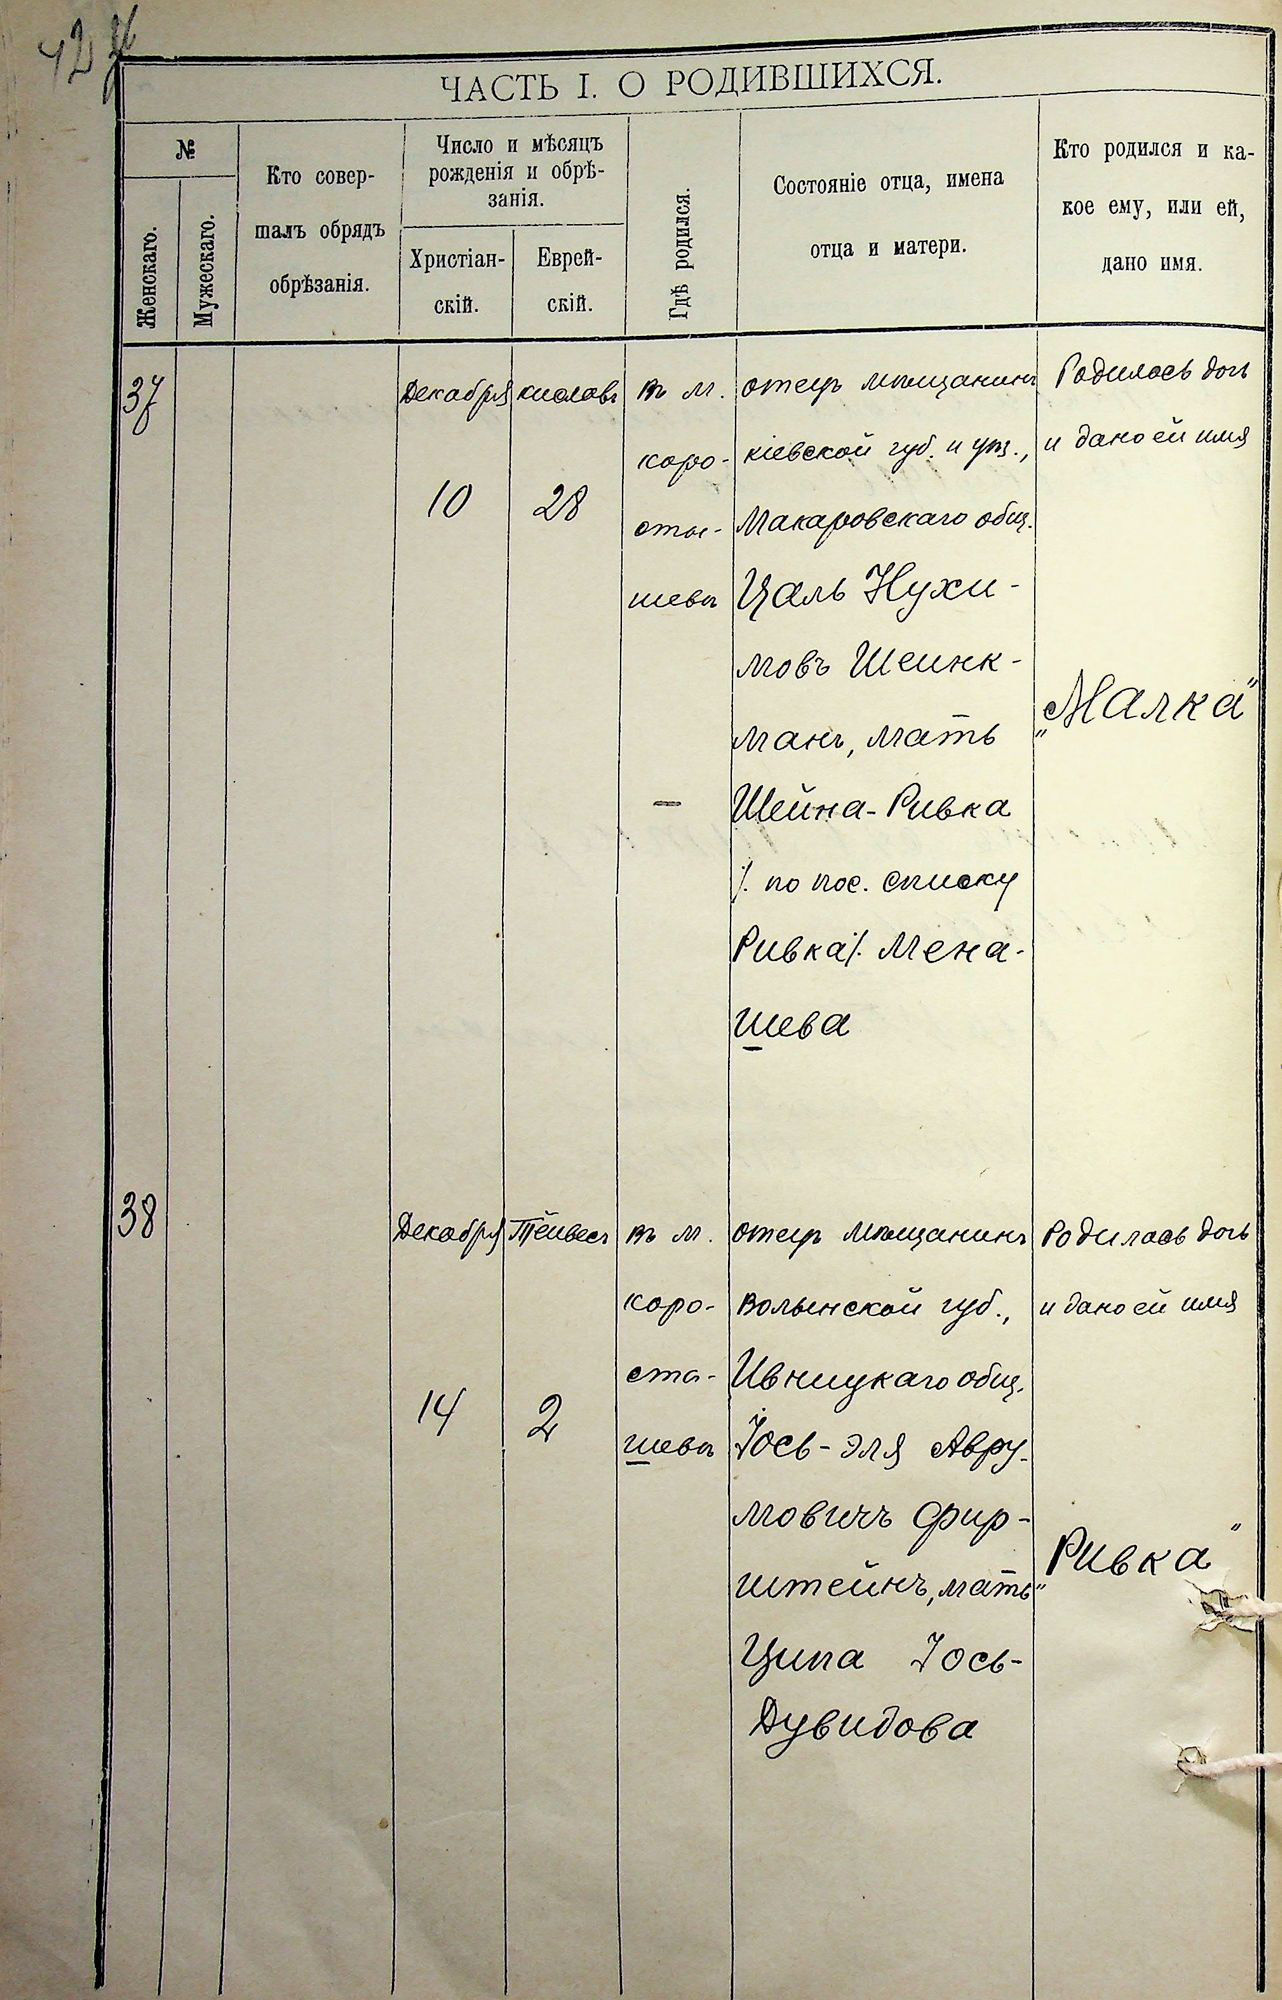 ЧАСТЬ I. О РОДИВШИХСЯ.
№
Женскаго.
Мужескаго.
Кто совер-
шалъ обрядъ
обрѣзанія.
Число и мѣсяцъ
рожденія и обрѣ-
занія.
Христіан-
скій.
Еврей-
скій.
Гдѣ родился.
Состояніе отца, имена
отца и матери.
Кто родился и ка-
кое ему, или ей,
дано имя.
37
Декабря
10
кислевъ
28
въ м.
коро-
сты-
шевѣ
отецъ мѣщанинъ
кіевской губ. и уѣз.,
Макаровскаго общ.
Цаль Нухи-
мовъ Шеинк-
манъ, мать
Шейна-Ривка
/. по пос. списку
Ривка/. Мена-
шева
Родилась дочь
и дано ей имя
„Малка"
38
Декабря
14
Тейвесъ
2
въ м.
коро-
сты-
шевѣ
отецъ мѣщанинъ
Волынской губ.,
Ивницкаго общ.
Іось-Эля Авру-
мовичъ Фир-
штейнъ, мать
Ципа Іось-
Дувидова
Родилась дочь
и дано ей имя
„Ривка"